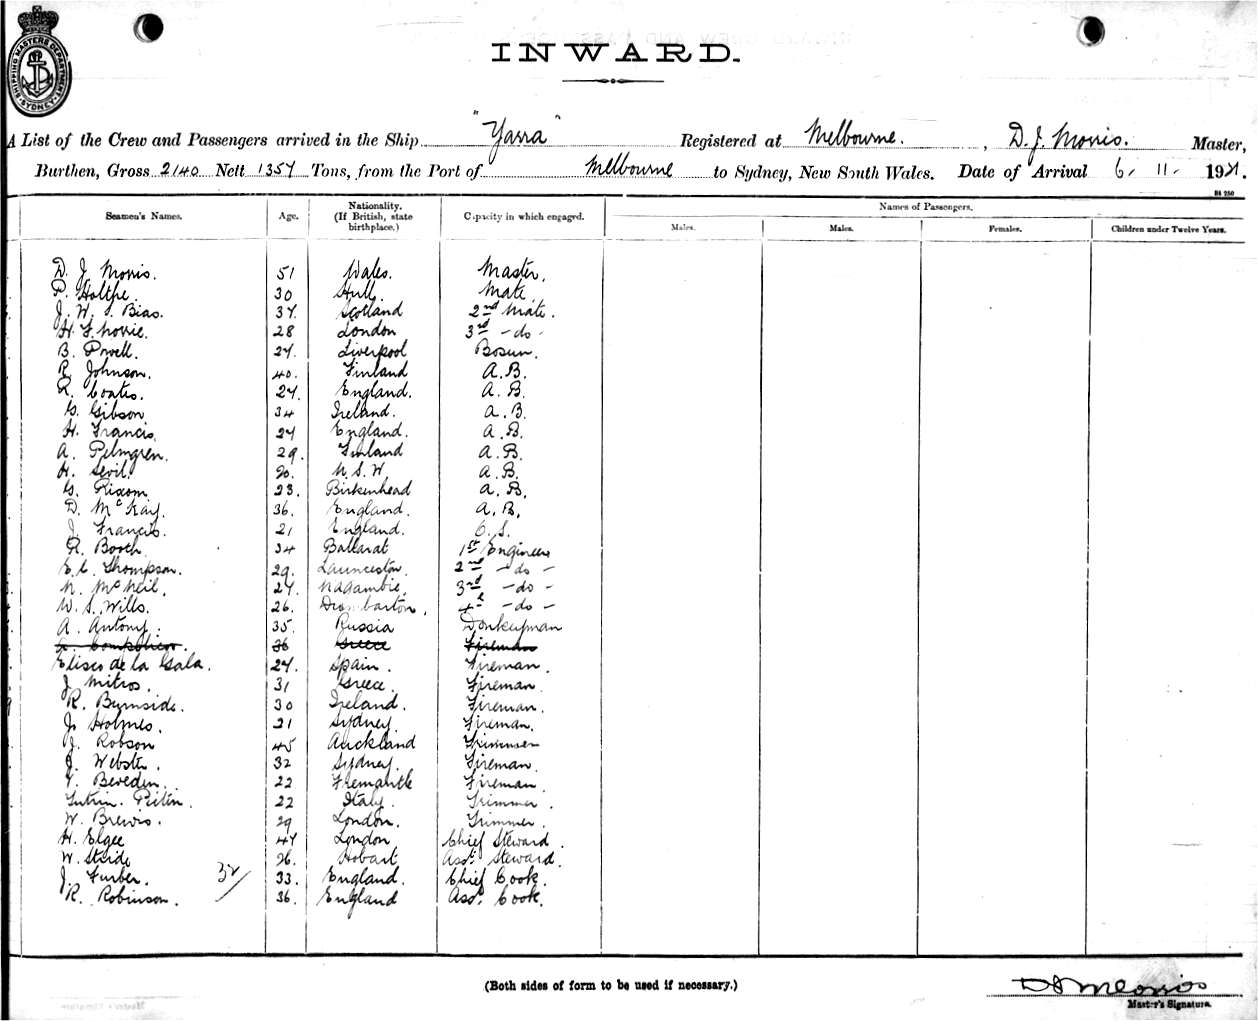 SHIPPING MASTERS DEPARTMENT SYDNEY
INWARD.
A List of the Crew and Passengers arrived in the Ship "Yarra" Registered at Melbourne. , D. J. Morris. Master,
Burthen, Gross 2140 Nett 1357 Tons, from the Port of Melbourne to Sydney, New South Wales. Date of Arrival 6. 11. 1921.
Seamen's Names. Age. Nationality. (If British, state birthplace.) Capacity in which engaged. Names of Passengers.
Males. Males. Females. Children under Twelve Years.
D. J. Morris. 51 Wales. Master.
P. 30 Hull. Mate
J. W. S. Bias. 37. Scotland 2nd Mate.
H. F. 28 London 3rd - do -
B. Powell. 27. Liverpool Bosun.
R. Johnson. 40. Finland A.B.
R. Coates. 27. England. A.B.
G. Gibson 34 Ireland. A.B.
H. Francis. 27 England. A.B.
A. Pelmgren. 29. Finland A.B.
H. Sevil. 20. N.S.W A.B.
G. Rixom 23. Birkenhead A.B.
D. McKay. 36. England. A.B.
J. Francis. 21 England. O.S.
R. Booth 34 Ballarat 1st Engineer
E. C. Thompson. 29. Launceston. 2nd - do -
N. McNeil. 27. Nagambie. 3rd - do -
W. S. Wills. 26. 4th - do -
A. Antony. 35. Russia Donkeyman
36 Greece Fireman
Eliseo de la Gala. 27. Spain. Fireman.
J. Mitros. 31 Greece. Fireman.
R. Burnside. 30 Ireland. Fireman.
J. Holmes. 21 Sydney. Fireman.
J. Robson 45 Auckland Trimmer
J. Webster. 32 Sydney. Fireman.
V. Bereden. 22 Fremantle Fireman.
22 Italy. Trimmer.
W. Brewis. 29 London. Trimmer.
H. Elgee 47 London Chief Steward.
W. Steide 26. Hobart Asst. Steward.
J. Furber. 32/ 33. England. Chief Cook.
R. Robinson. 36. England Asst. Cook.
(Both sides of form to be used if necessary.)
D J Morris
Master's Signature.